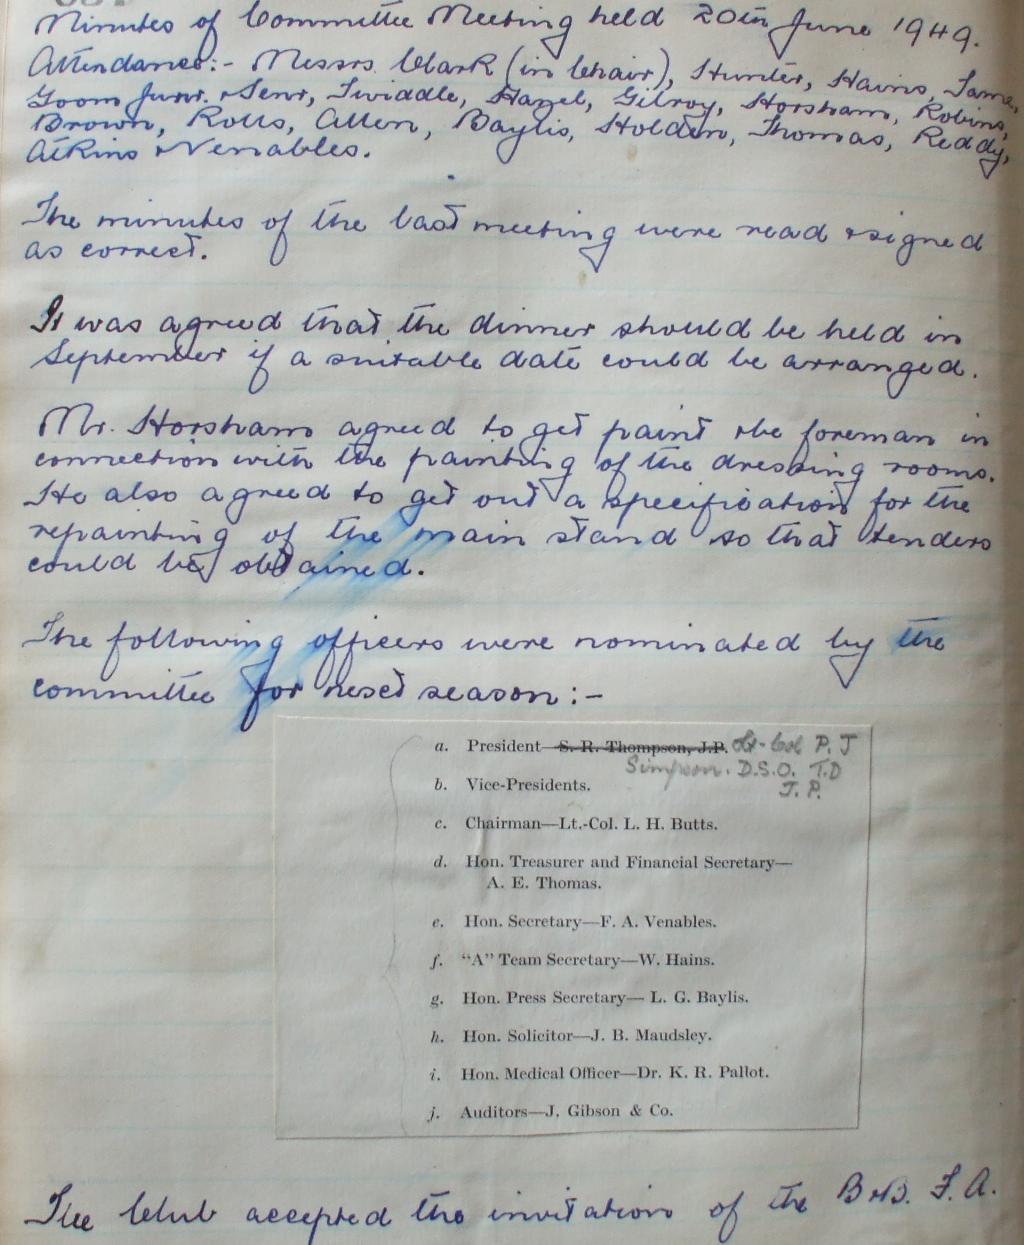 Minutes of Committee Meeting held 20th June 1949.
Attendance:- Messrs Clark (in Chair), Hunter, Hains, Lame,
Goom Junr. & Senr, Twiddle, Hazel, Gilroy, Horsham, Robins,
Brown, Rolls, Allen, Baylis, Holden, Thomas, Reddy,
Atkins & Venables.
The minutes of the last meeting were read & signed
as correct.
It was agreed that the dinner should be held in
September if a suitable date could be arranged.
Mr. Horsham agreed to get paint the foreman in
connection with the painting of the dressing rooms.
He also agreed to get out a specification for the
repainting of the main stand so that tenders
could be obtained.
The following officers were nominated by the
committee for next season:-
a. President—S. R. Thompson, J.P. Lt-Col P. J
Simpson. D.S.O. T.D
J. P.
b. Vice-Presidents.
c. Chairman—Lt.-Col. L. H. Butts.
d. Hon. Treasurer and Financial Secretary—
A. E. Thomas.
e. Hon. Secretary—F. A. Venables.
f. “A” Team Secretary—W. Hains.
g. Hon. Press Secretary— L. G. Baylis.
h. Hon. Solicitor—J. B. Maudsley.
i. Hon. Medical Officer—Dr. K. R. Pallot.
j. Auditors—J. Gibson & Co.
The Club accepted the invitation of the B & B. F. A.